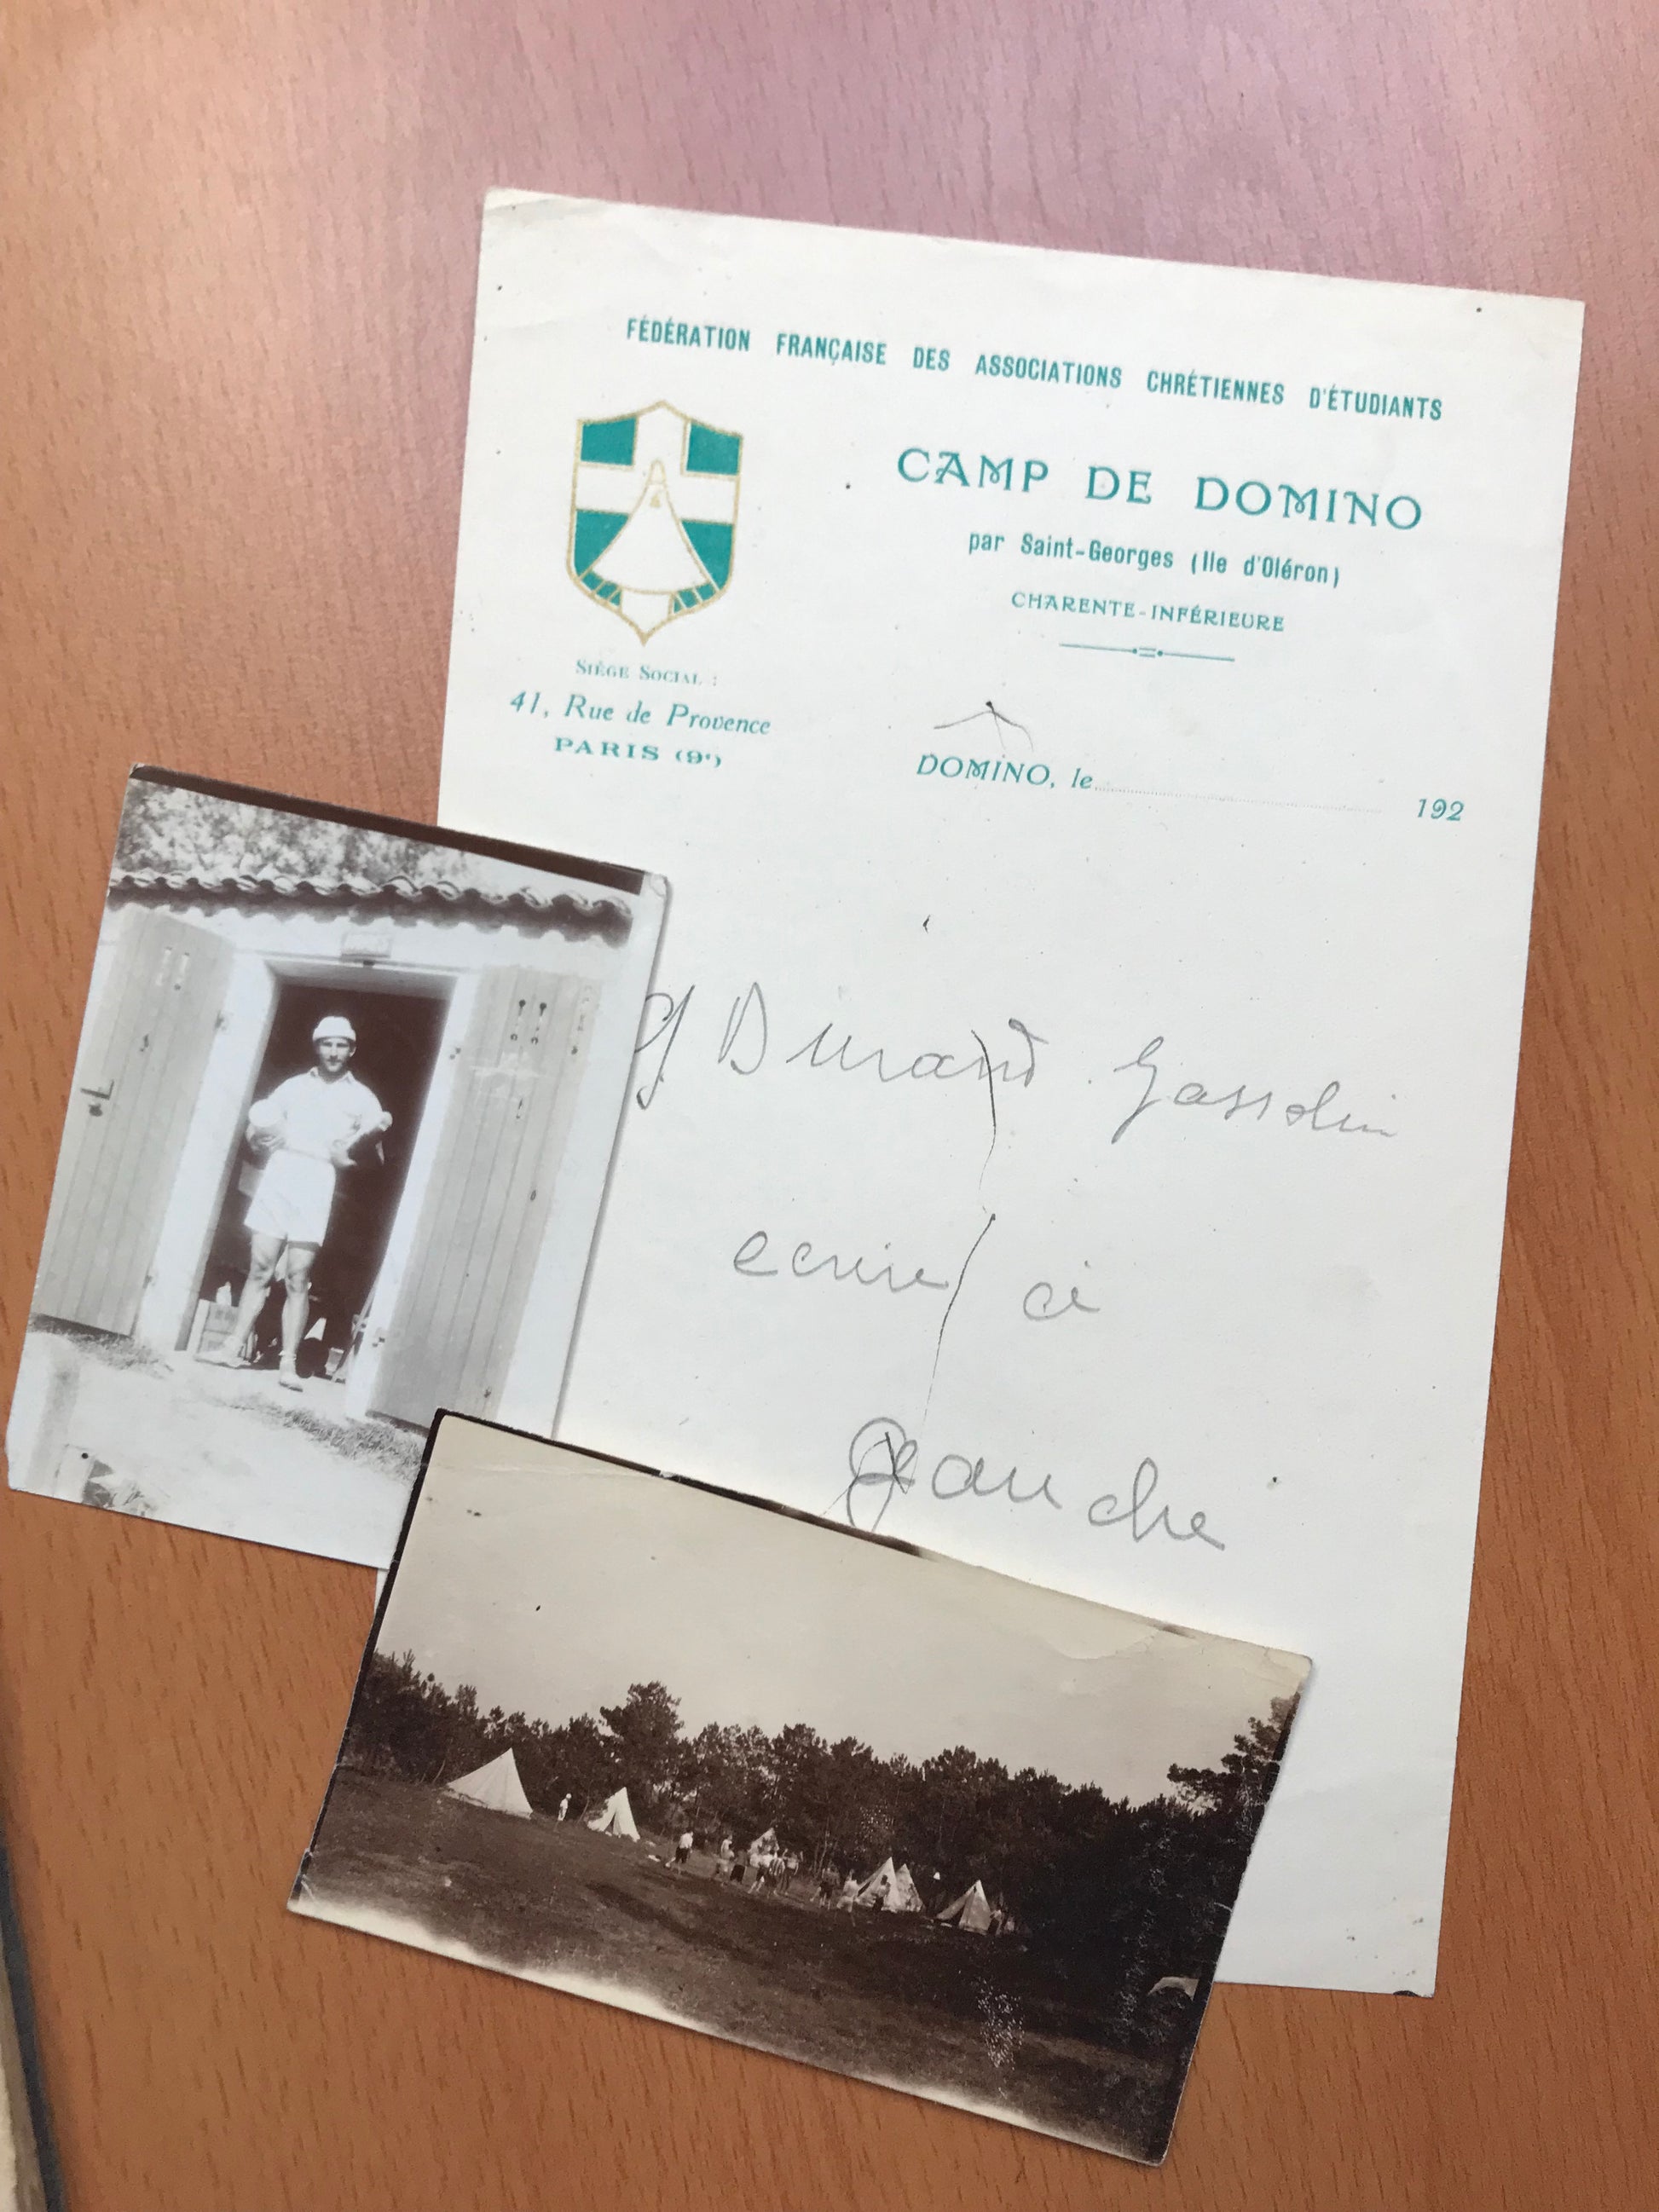 FÉDÉRATION FRANÇAISE DES ASSOCIATIONS CHRÉTIENNES D'ÉTUDIANTS
CAMP DE DOMINO
par Saint-Georges (Ile d'Oléron)
CHARENTE-INFÉRIEURE
SIÈGE SOCIAL :
41, Rue de Provence
PARIS (9e)
DOMINO, le 192
G Durand Gasselin
ecrire ci
Gauche